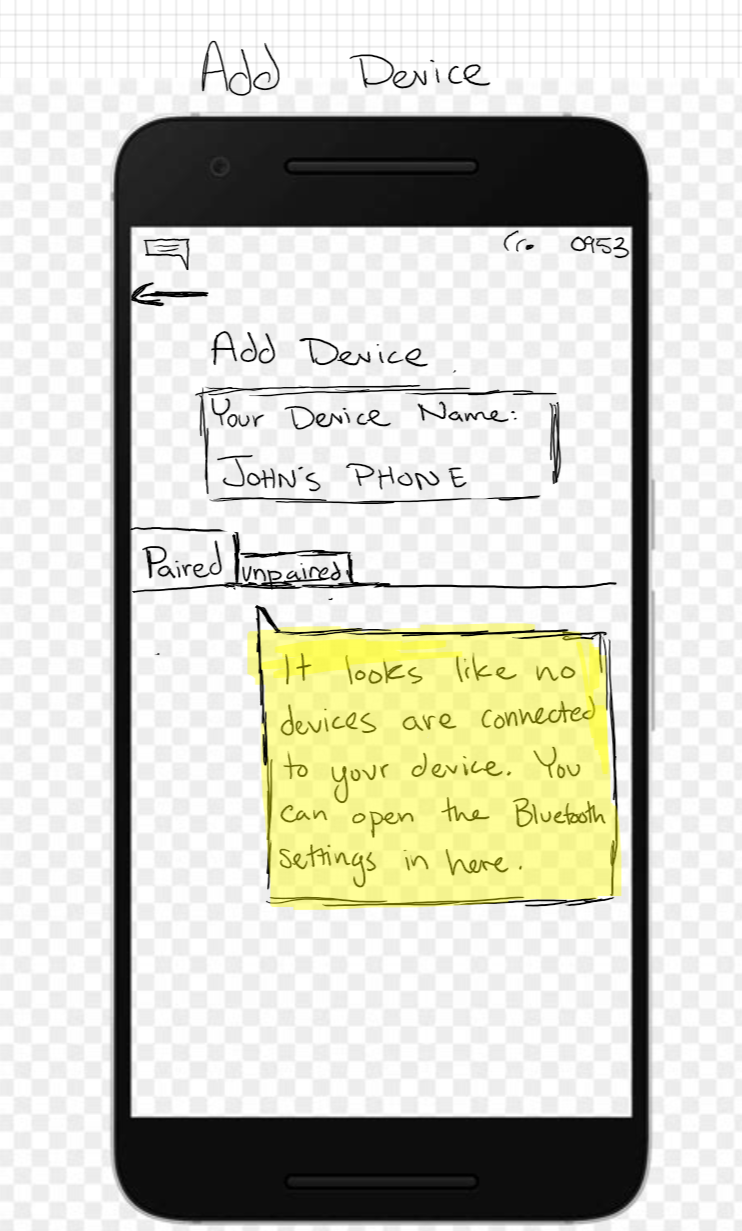 Add Device
0953
Add Device
Your Device Name:
JOHN'S PHONE
Paired unpaired
It looks like no
devices are connected
to your device. You
can open the Bluetooth
settings in here.